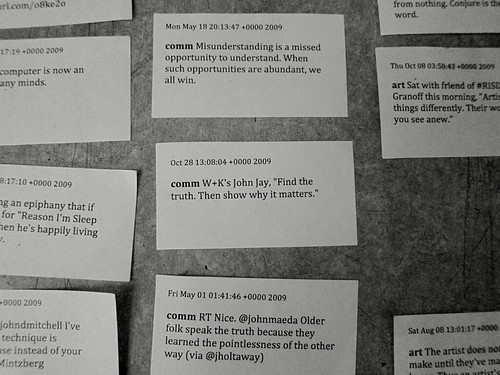 url.com/o8ke2o
17:19 +0000 2009
computer is now an
any minds.
8:17:10 +0000 2009
ng an epiphany that if
for "Reason I'm Sleep
hen he's happily living
+0000 2009
johndmitchell I've
technique is
use instead of your
Mintzberg
Mon May 18 20:13:47 +0000 2009
comm Misunderstanding is a missed
opportunity to understand. When
such opportunities are abundant, we
all win.
Oct 28 13:08:04 +0000 2009
comm W+K's John Jay, "Find the
truth. Then show why it matters."
Fri May 01 01:41:46 +0000 2009
comm RT Nice. @johnmaeda Older
folk speak the truth because they
learned the pointlessness of the other
way (via @jholtaway)
from nothing. Conjure is the
word.
Thu Oct 08 03:50:43 +0000 2009
art Sat with friend of #RISD
Granoff this morning, "Artis
things differently. Their wo
you see anew."
Sat Aug 08 13:01:17 +0000
art The artist does no
make until they've ma